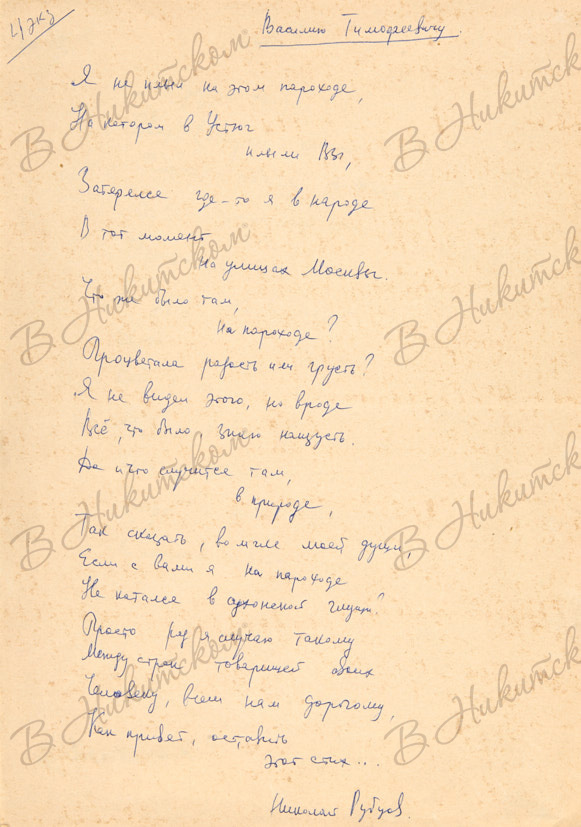 4 экз
Василию Тимофеевичу.
Я не плыл на этом пароходе,
На котором в Устюг
плыли Вы,
Затерялся где-то я в народе
В тот момент
на улицах Москвы.
Что же было там,
на пароходе?
Процветала радость или грусть?
Я не видел этого, но вроде
Всё, что было знаю наизусть.
Да и что случится там,
в природе,
Так сказать, во мгле моей души,
Если с Вами я на пароходе
Не катался в сухонской глуши?
Просто рад я случаю такому
Между строк товарищей своих
Человеку, всем нам дорогому,
Как привет, оставить
этот стих...
Николай Рубцов.
В Никитском
В Никитск
В Никитском
В Никитск
В Никитском
В Никитск
В Никитском
В Никитск